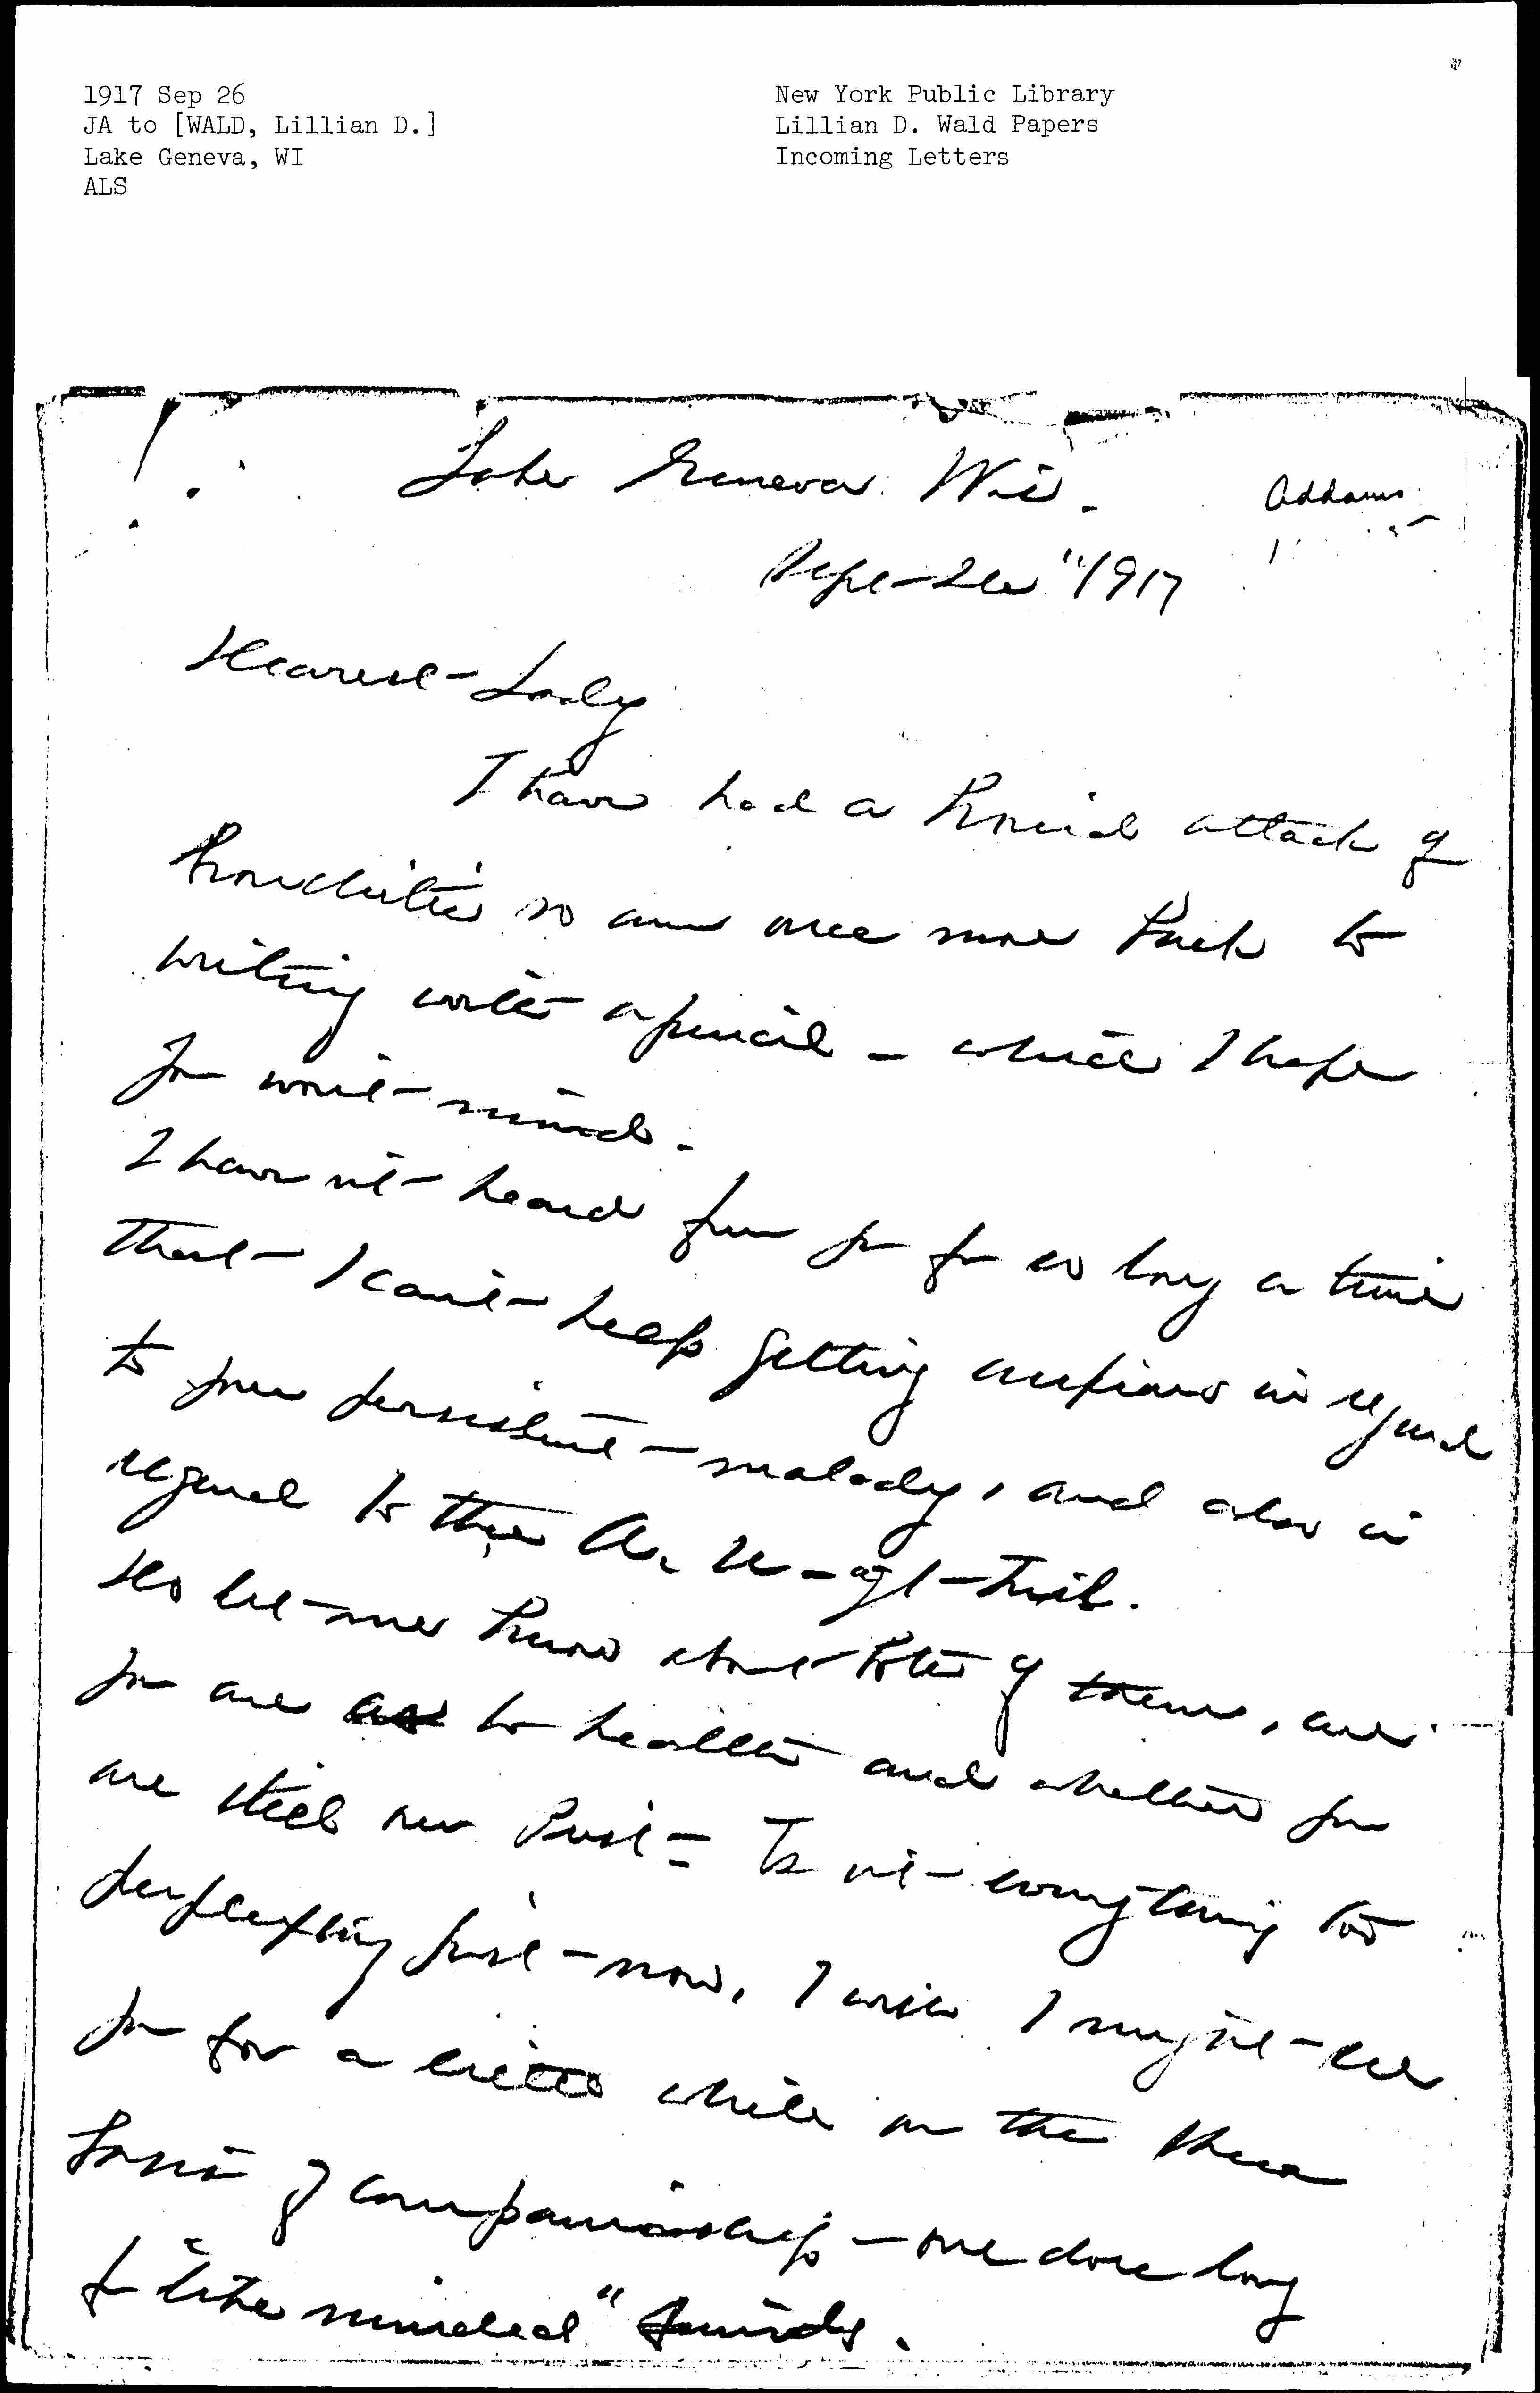 1917 Sep 26
JA to [WALD, Lillian D.]
Lake Geneva, WI
ALS
New York Public Library
Lillian D. Wald Papers
Incoming Letters
Lake Geneva Wis.
Addams
Sept-26" 1917
Dearest-Lady
I have had a horrid attack of
bronchitis so am once more back to
writing with a pencil - which I hope
you won't-mind.
I have not-heard from you for so long a time
that-I can't-help getting anxious in regard
to your persistent-malady, and also in
regard to the A. U - agt-
Do let-me know about-both of them, and
you are to health and whether you
are still
perplexing just-now, I wish I might-see
you for a little while on the sheer
basis of companionship - one does long
for like minded" friends.